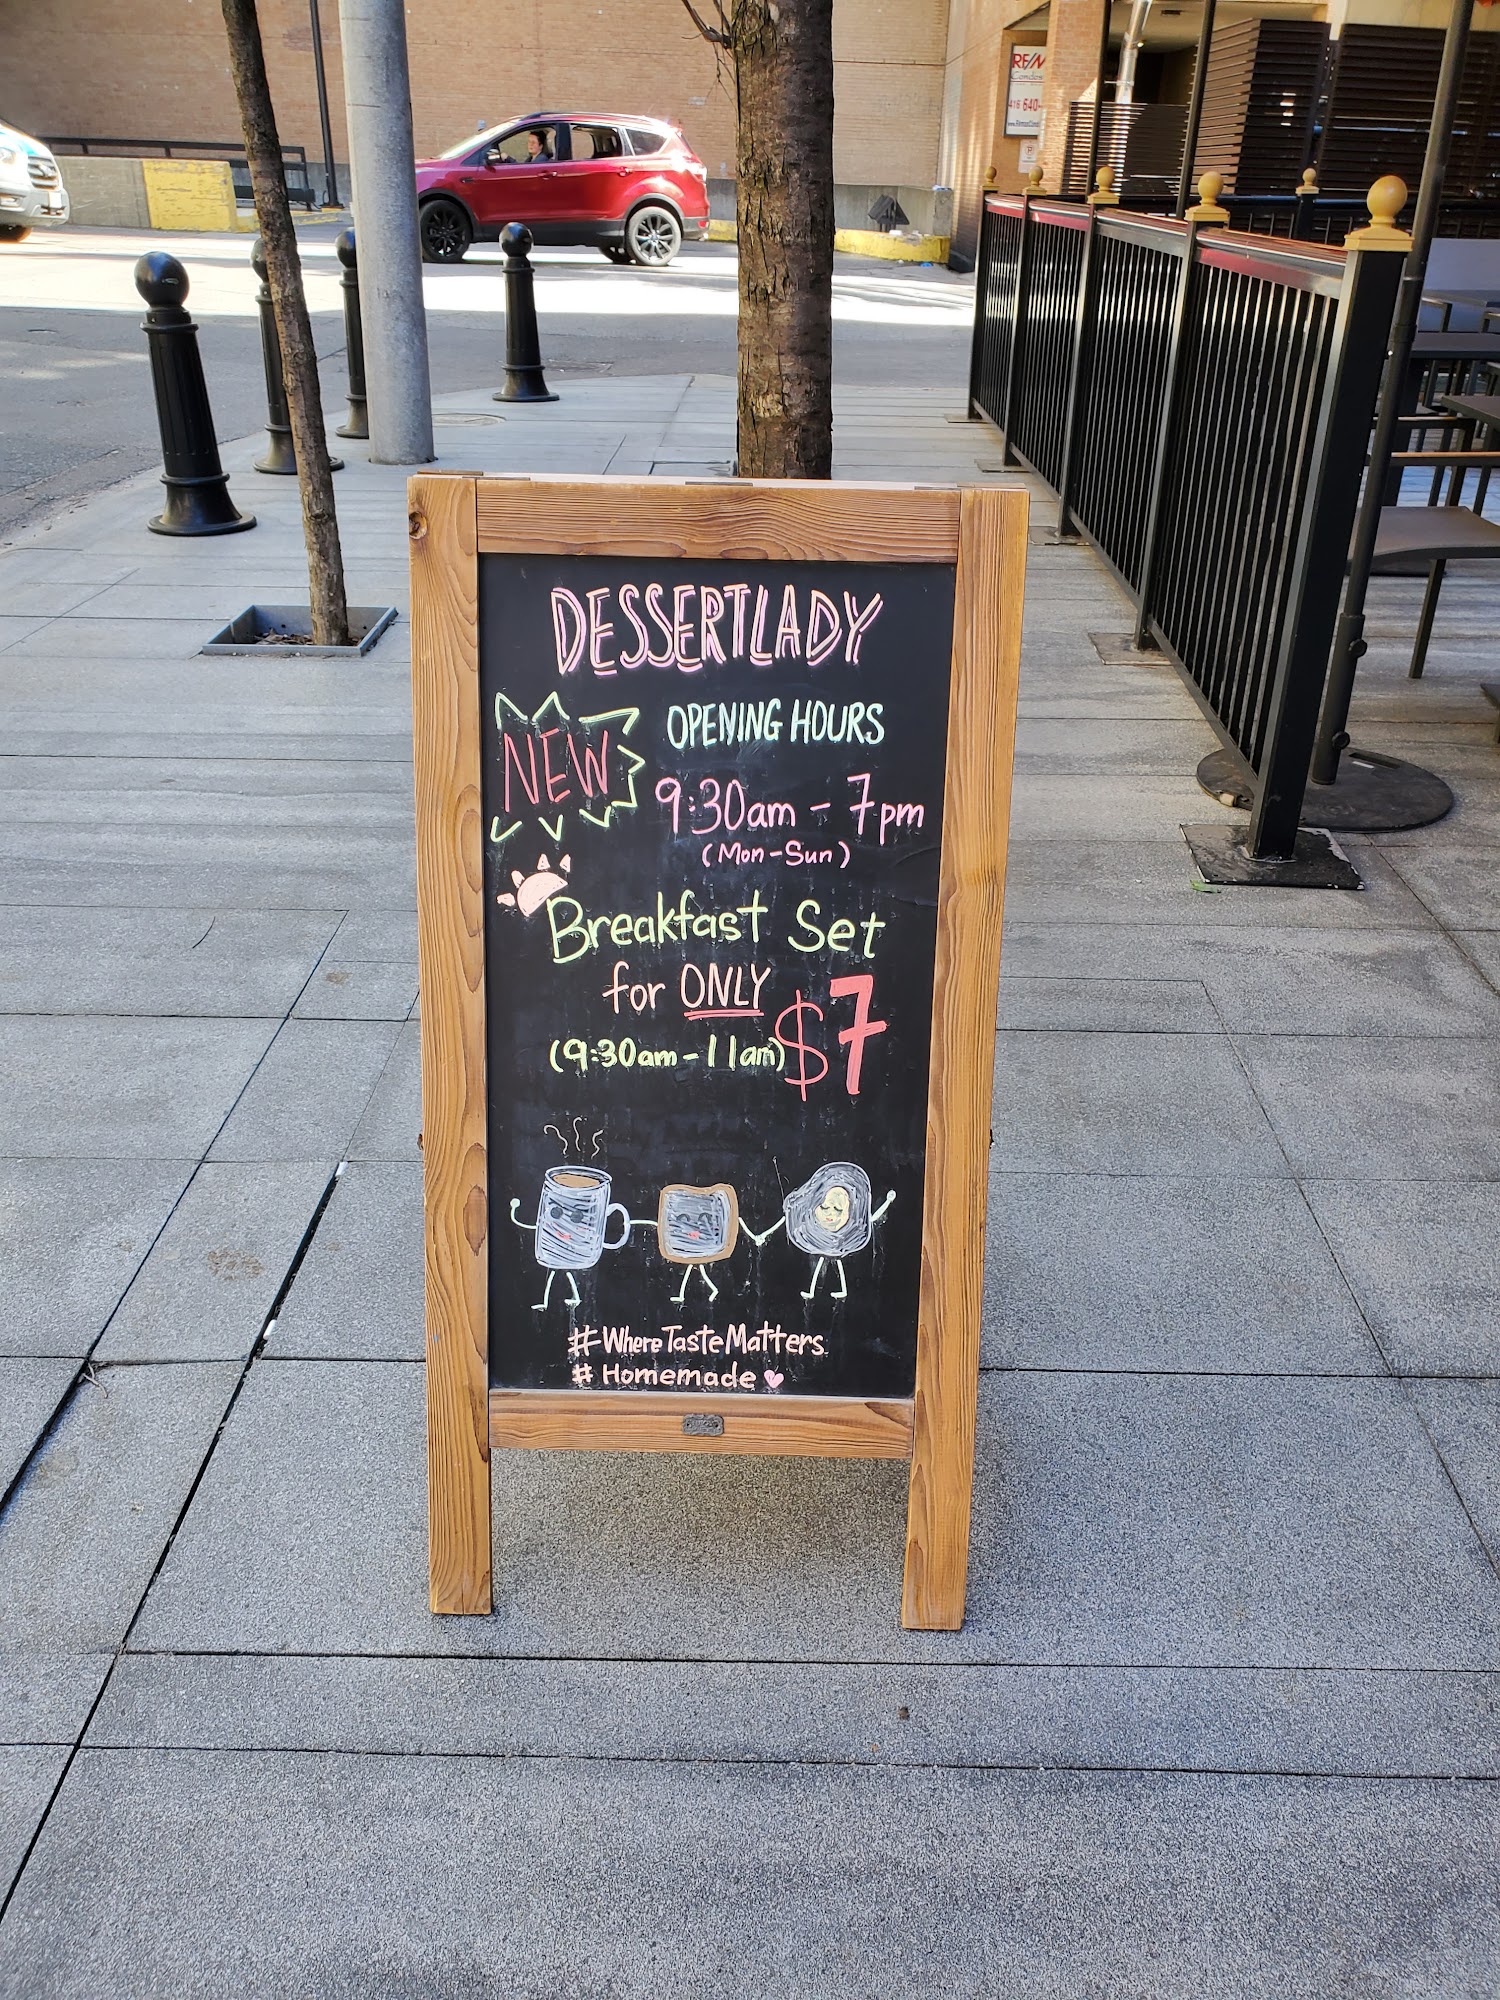 DESSERTLADY
NEW
OPENING HOURS
9:30am - 7pm
(Mon-Sun)
Breakfast Set
for ONLY
$7
(9:30am-11am)
#WhereTasteMatters
#Homemade
RE/M
Condos
416 640-